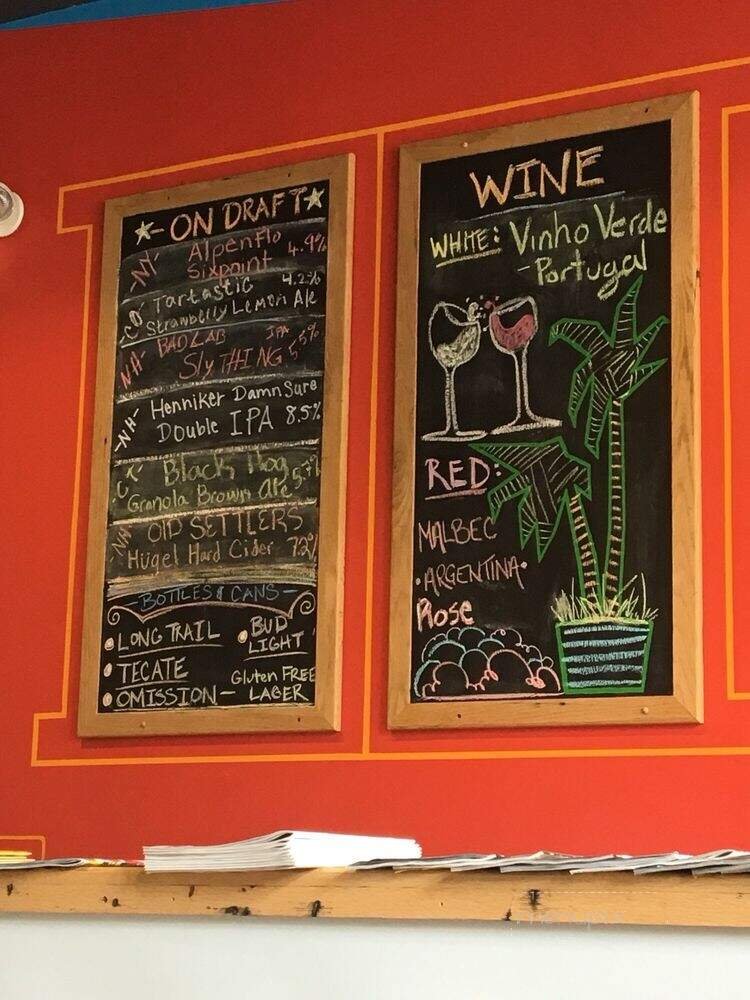 ON DRAFT
NY Alpenflo 4.9%
Sixpoint
CO Tartastic 4.2%
Strawberry Lemon Ale
NH BAD LAB IPA
Sly THING 5.5%
NH Henniker DamnSure
Double IPA 8.5%
CT Black Hog
Granola Brown Ale
NH OlD SETTLERS
Hügel Hard Cider 7.2%
BOTTLES & CANS
LONG TRAIL
BUD LIGHT
TECATE
OMISSION - Gluten FREE
LAGER
WINE
WHITE: Vinho Verde
- Portugal
RED:
MALBEC
· ARGENTINA ·
Rose